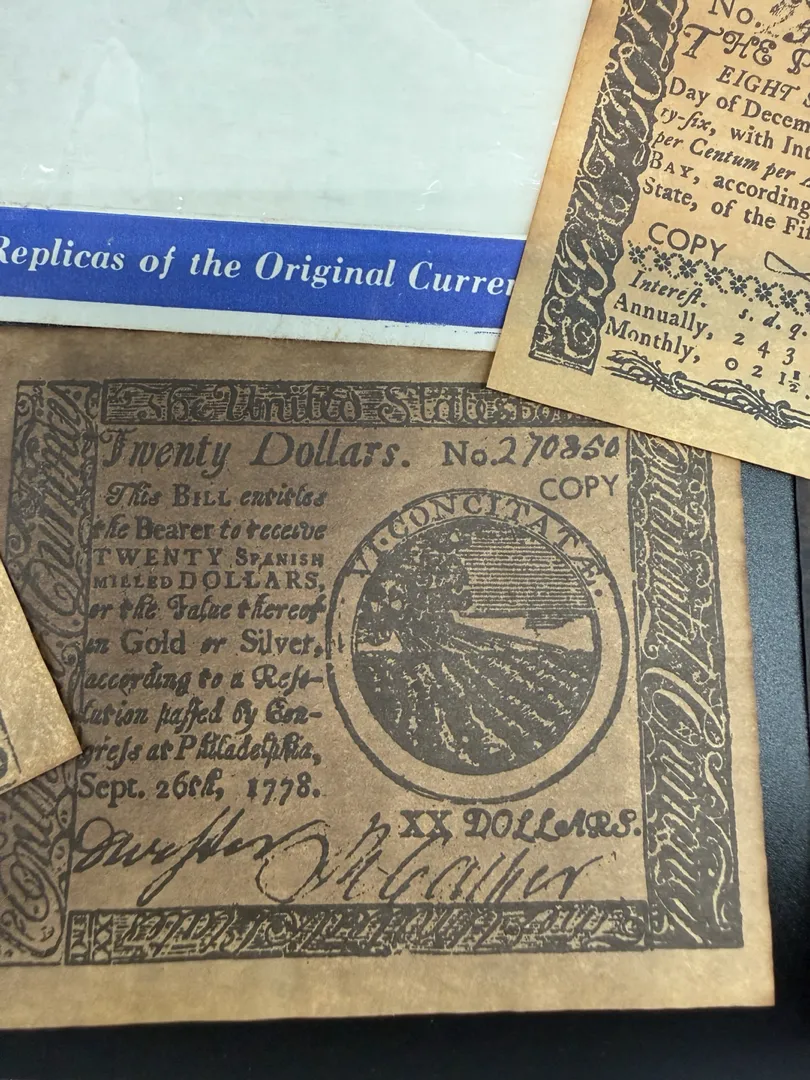 Replicas of the Original Curren
No.
THE P
EIGHT S
Day of Decem
ty-six, with Int
per Centum per A
BAY, according
State, of the Fif
COPY
Interest. s. d. q.
Annually, 2 4 3
Monthly, 0 2 1
The United States
Twenty Dollars. No. 270850
COPY
This BILL entitles
the Bearer to receive
TWENTY SPANISH
MILLED DOLLARS,
or the Value thereof
in Gold or Silver,
according to a Reso-
lution passed by Con-
gress at Philadelphia,
Sept. 26th, 1778.
VI·CONCITATÆ.
XX DOLLARS.
Continental Currency